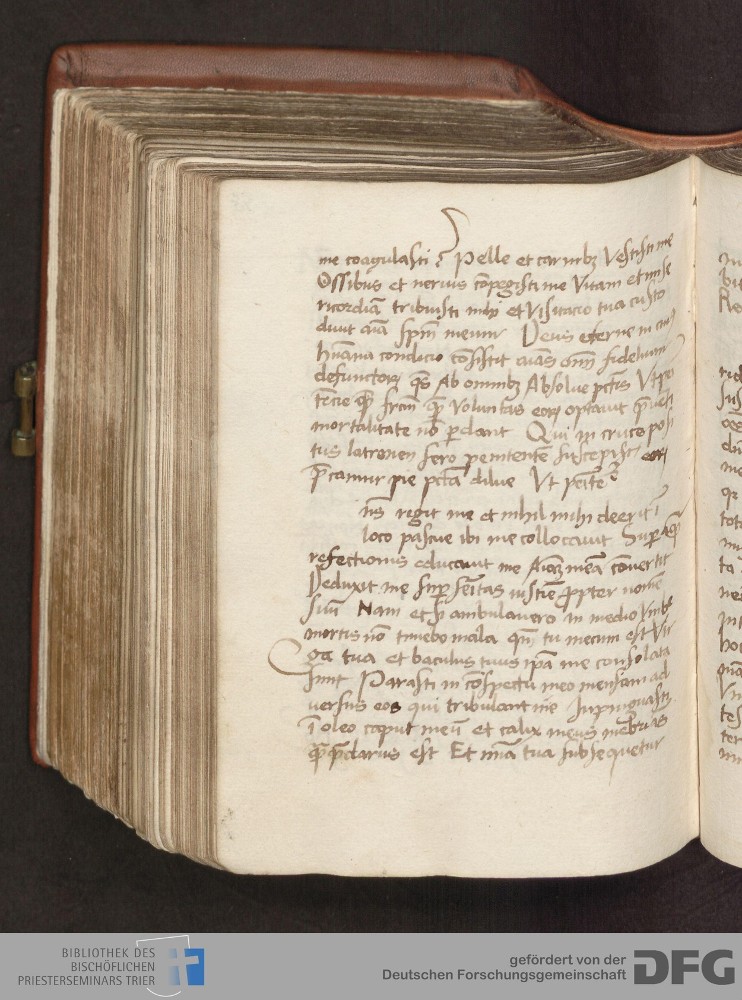 me coagulasti? Pelle et carnibꝫ Vestisti me
Ossibus et neruis cōpegisti me Vitam et mise
ricordiā tribuisti mihi et Visitacio tua custo
diuit aīā spm̄ meum Deus eterne in cuiꝰ
hūana condicio cōsistit aīas om̄ fidelium
defunctorꝝ qs̄ Ab omnibꝫ Absolue pctīs Vt
fr̄cm̄ Voluntas eorꝝ optauit
mortalitate nō ꝑdant Qui in cruce posi
tus latronem sero penitentē suscepisti eorꝝ
p̄camur pie pctā dilue Vt
īns regit me et nihil mihi deerit ī
loco pascue ibi me collocauit Suꝑ aqā
refectionis educauit me Aīaꝫ meā cōuertit
Deduxit me suꝑ semitas iusticie ꝓpter nomē
suū Nam et si ambulauero in medio vmbꝫ
mortis nō timebo mala qm̄ tu mecum est Vir
ga tua et baculus tuus ipā me consolata
sunt Parasti in cōspectu meo mensam ad
uersus eos qui tribulant me Inpinguasti
ī oleo caput meū et calix meus inebrias
p̄clarus est Et mīa tua subsequetur
BIBLIOTHEK DES
BISCHÖFLICHEN
PRIESTERSEMINARS TRIER
gefördert von der
Deutschen Forschungsgemeinschaft
DFG